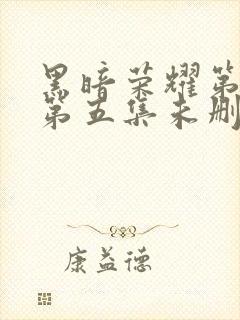 黑暗荣耀第
第五集未删
康益德